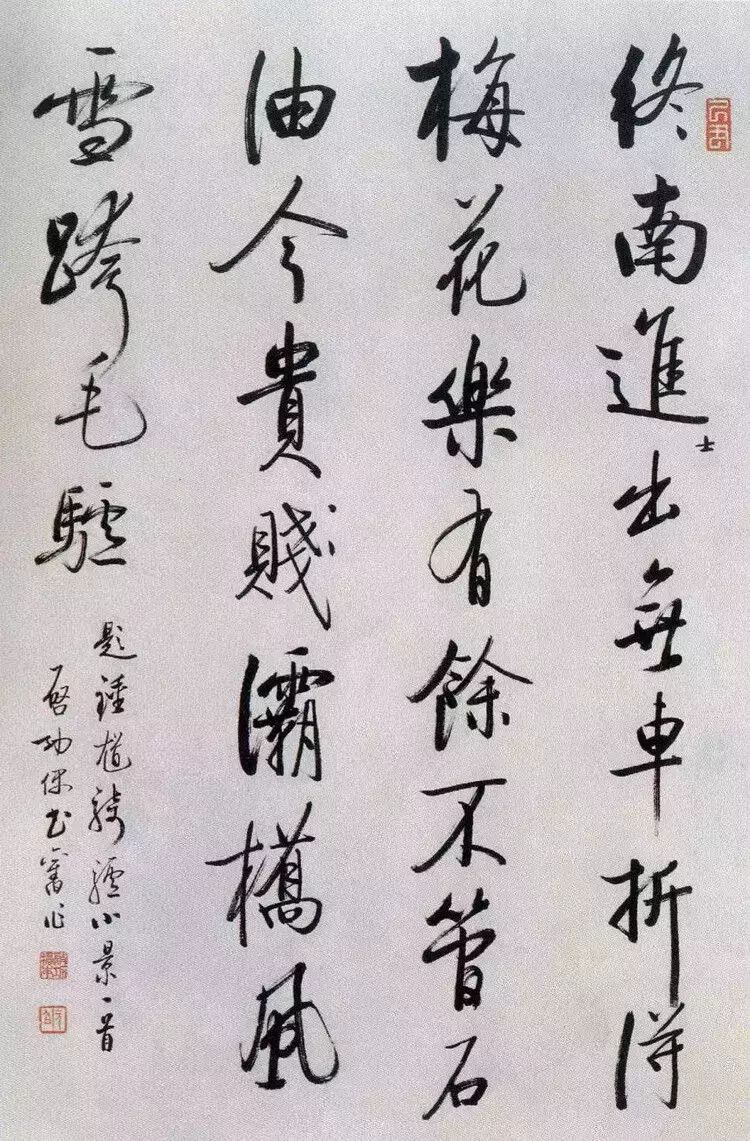 終南進士出無車折得
梅花樂有餘不管石
油今貴賤灞橋風
雪跨毛驢
題鍾馗騎驢小景一首
啓功偶書舊作